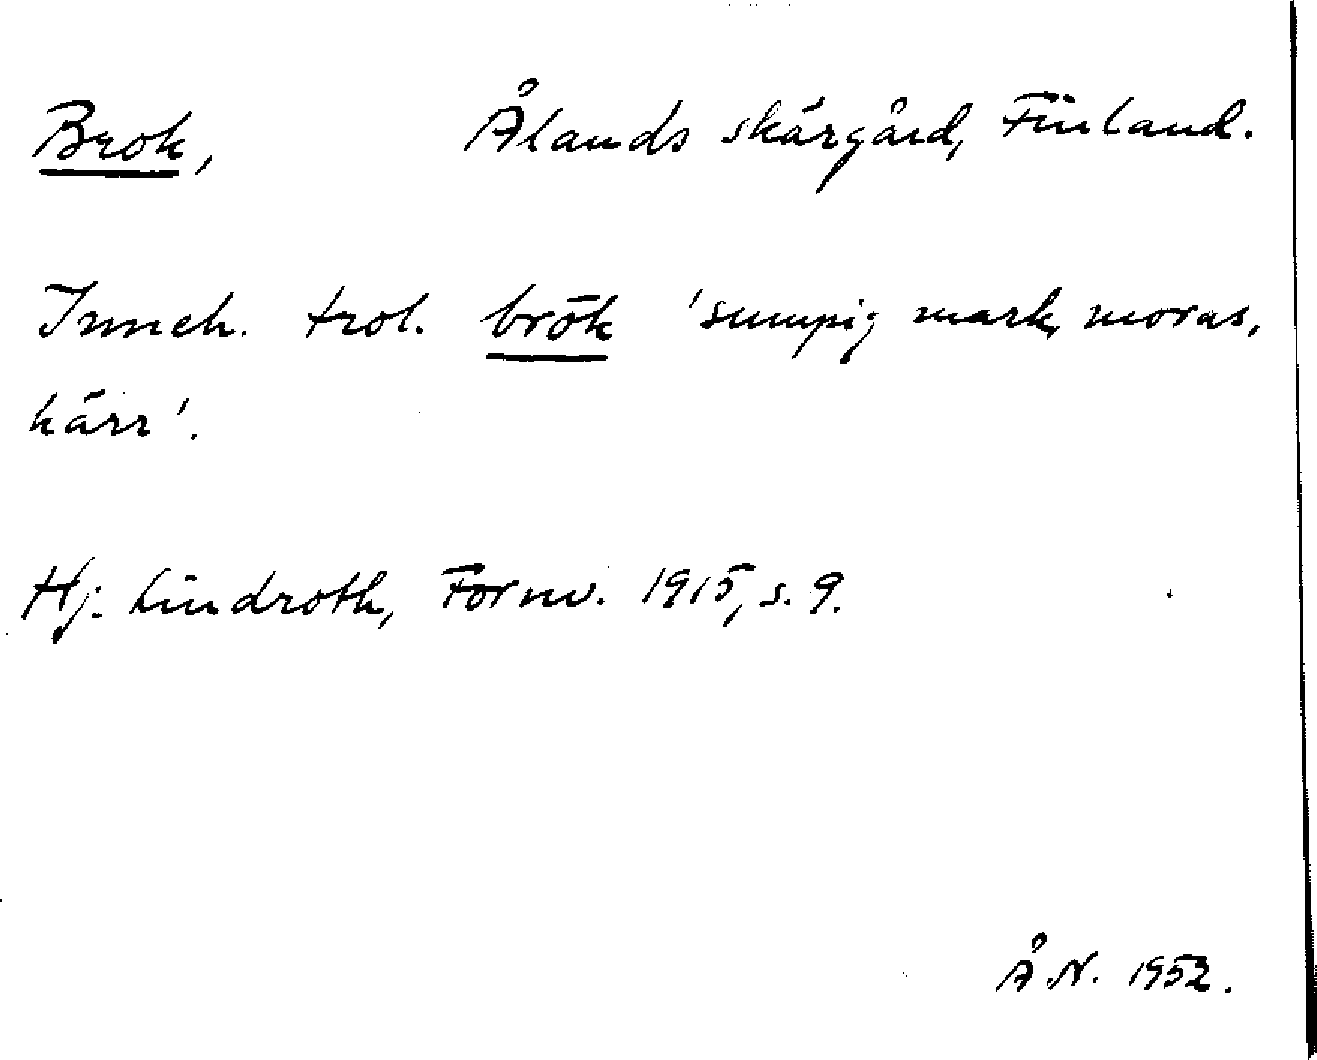 Brok, Ålands skärgård, Finland.
Inneh. trol. brōk 'sumpig mark, moras,
kärr'.
Hj. Lindroth, Fornv. 1915, s. 9.
Å N. 1952.